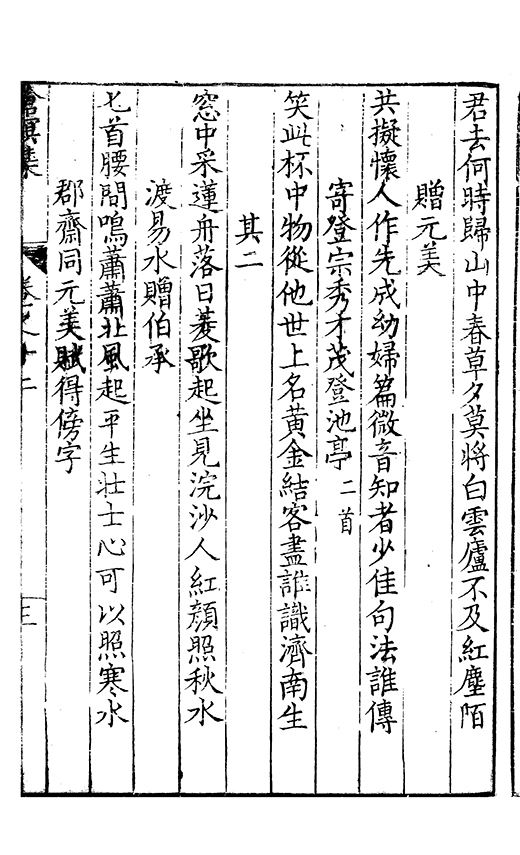 君去何時歸山中春草夕莫將白雲廬不及紅塵陌
贈元美
共擬懷人作先成幼婦篇微音知者少佳句法誰傳
寄登宗秀才茂登池亭二首
笑此杯中物從他世上名黃金結客盡誰識濟南生
其二
窓中采蓮舟落日菱歌起坐見浣沙人紅顏照秋水
渡易水贈伯承
匕首腰間鳴蕭蕭北風起平生壯士心可以照寒水
郡齋同元美賦得傍字
滄溟集
卷之十二
三